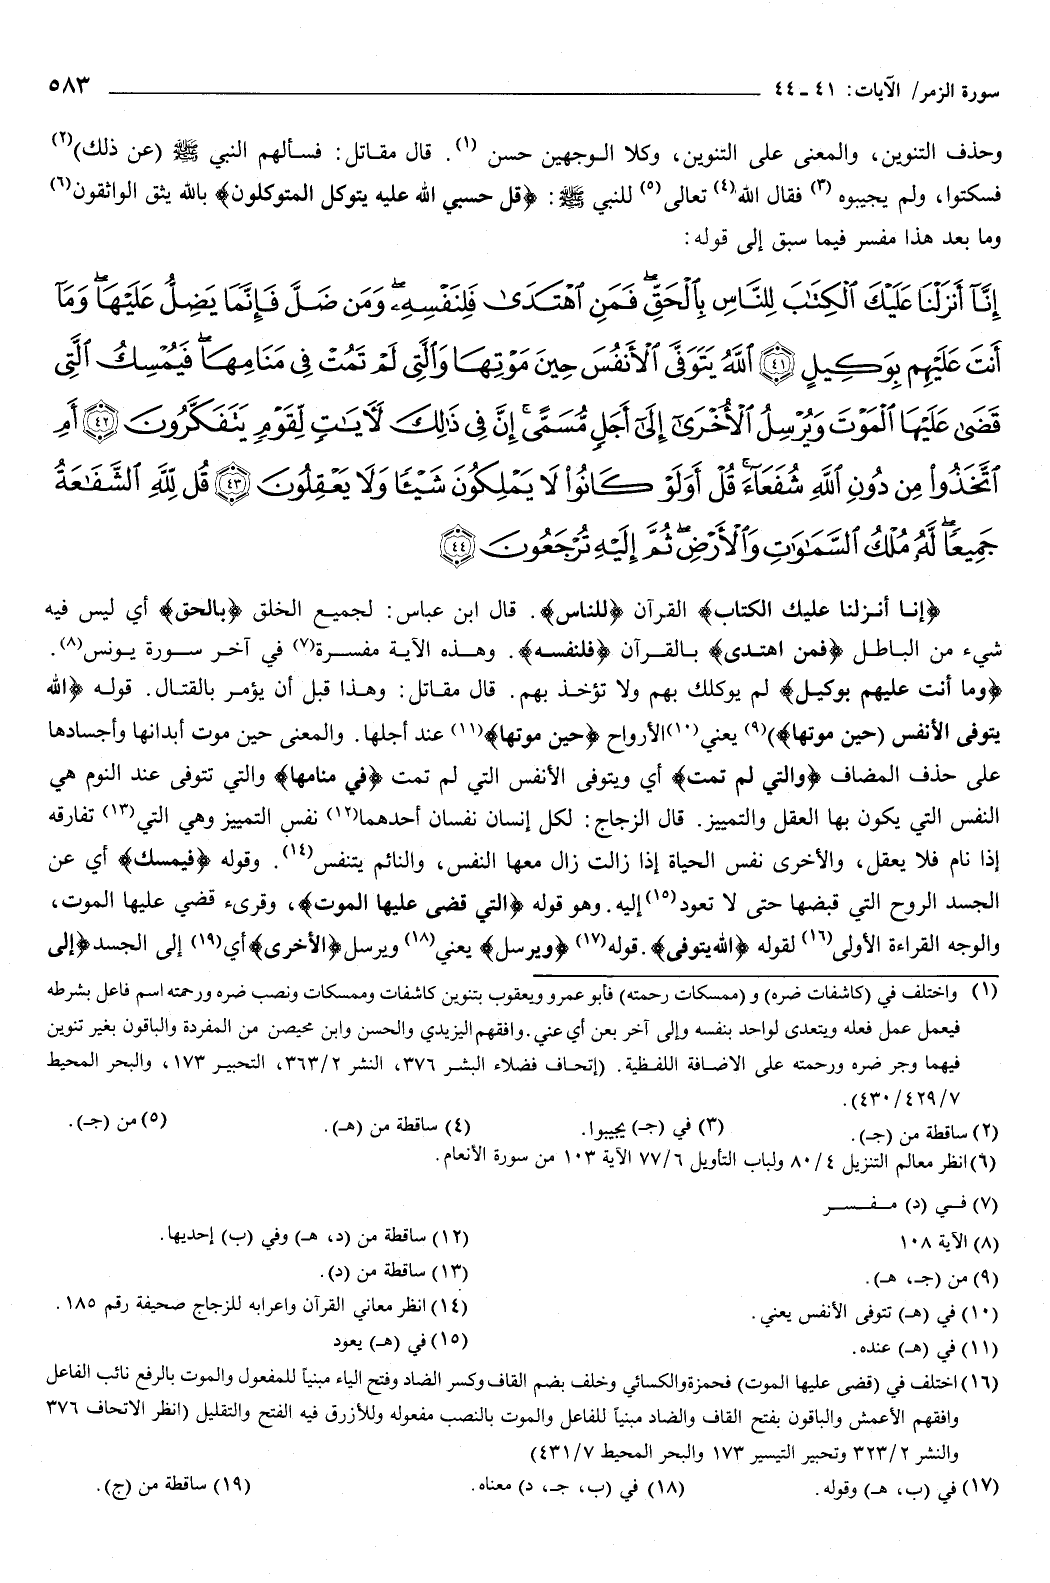 سورة الزمر/ الآيات: ٤١ ـ ٤٤ ٥٨٣
وحذف التنوين، والمعنى على التنوين، وكلا الوجهين حسن (١). قال مقاتل: فسألهم النبي ﷺ (عن ذلك)(٢)
فسكتوا، ولم يجيبوه (٣) فقال الله(٤) تعالى(٥) للنبي ﷺ: ﴿قل حسبي الله عليه يتوكل المتوكلون﴾ بالله يثق الواثقون(٦)
وما بعد هذا مفسر فيما سبق إلى قوله:
إِنَّآ أَنزَلْنَا عَلَيْكَ ٱلْكِتَٰبَ لِلنَّاسِ بِٱلْحَقِّ ۖ فَمَنِ ٱهْتَدَىٰ فَلِنَفْسِهِۦ ۖ وَمَن ضَلَّ فَإِنَّمَا يَضِلُّ عَلَيْهَا ۖ وَمَآ
أَنتَ عَلَيْهِم بِوَكِيلٍ ﴿٤١﴾ ٱللَّهُ يَتَوَفَّى ٱلْأَنفُسَ حِينَ مَوْتِهَا وَٱلَّتِى لَمْ تَمُتْ فِى مَنَامِهَا ۖ فَيُمْسِكُ ٱلَّتِى
قَضَىٰ عَلَيْهَا ٱلْمَوْتَ وَيُرْسِلُ ٱلْأُخْرَىٰٓ إِلَىٰٓ أَجَلٍ مُّسَمًّى ۚ إِنَّ فِى ذَٰلِكَ لَءَايَٰتٍ لِّقَوْمٍ يَتَفَكَّرُونَ ﴿٤٢﴾ أَمِ
ٱتَّخَذُوا۟ مِن دُونِ ٱللَّهِ شُفَعَآءَ ۚ قُلْ أَوَلَوْ كَانُوا۟ لَا يَمْلِكُونَ شَيْـًٔا وَلَا يَعْقِلُونَ ﴿٤٣﴾ قُل لِّلَّهِ ٱلشَّفَٰعَةُ
جَمِيعًا ۖ لَّهُۥ مُلْكُ ٱلسَّمَٰوَٰتِ وَٱلْأَرْضِ ۖ ثُمَّ إِلَيْهِ تُرْجَعُونَ ﴿٤٤﴾
﴿إنا أنزلنا عليك الكتاب﴾ القرآن ﴿للناس﴾. قال ابن عباس: لجميع الخلق ﴿بالحق﴾ أي ليس فيه
شيء من الباطل ﴿فمن اهتدى﴾ بالقرآن ﴿فلنفسه﴾. وهذه الآية مفسرة(٧) في آخر سورة يونس(٨).
﴿وما أنت عليهم بوكيل﴾ لم يوكلك بهم ولا تؤخذ بهم. قال مقاتل: وهذا قبل أن يؤمر بالقتال. قوله ﴿الله
يتوفى الأنفس (حين موتها﴾)(٩) يعني(١٠)الأرواح ﴿حين موتها﴾(١١) عند أجلها. والمعنى حين موت أبدانها وأجسادها
على حذف المضاف ﴿والتي لم تمت﴾ أي ويتوفى الأنفس التي لم تمت ﴿في منامها﴾ والتي تتوفى عند النوم هي
النفس التي يكون بها العقل والتمييز. قال الزجاج: لكل إنسان نفسان أحدهما(١٢) نفس التمييز وهي التي(١٣) تفارقه
إذا نام فلا يعقل، والأخرى نفس الحياة إذا زالت زال معها النفس، والنائم يتنفس(١٤). وقوله ﴿فيمسك﴾ أي عن
الجسد الروح التي قبضها حتى لا تعود(١٥) إليه. وهو قوله ﴿التي قضى عليها الموت﴾، وقرىء قضي عليها الموت،
والوجه القراءة الأولى(١٦) لقوله ﴿الله يتوفى﴾. قوله(١٧) ﴿ويرسل﴾ يعني(١٨) ويرسل﴿الأخرى﴾أي(١٩) إلى الجسد﴿إلى
(١) واختلف في (كاشفات ضره) و (ممسكات رحمته) فأبو عمرو ويعقوب بتنوين كاشفات وممسكات ونصب ضره ورحمته اسم فاعل بشرطه
فيعمل عمل فعله ويتعدى لواحد بنفسه وإلى آخر بعن أي عني. وافقهم اليزيدي والحسن وابن محيصن من المفردة والباقون بغير تنوين
فيهما وجر ضره ورحمته على الاضافة اللفظية. (إتحاف فضلاء البشر ٣٧٦، النشر ٣٦٣/٢، التحبير ١٧٣، والبحر المحيط
٤٢٩/٧/ ٤٣٠).
(٢) ساقطة من (جـ). (٣) في (جـ) يجيبوا. (٤) ساقطة من (هـ). (٥) من (جـ).
(٦) انظر معالم التنزيل ٨٠/٤ ولباب التأويل ٧٧/٦ الآية ١٠٣ من سورة الأنعام.
(٧) في (د) مفسر
(٨) الآية ١٠٨ (١٢) ساقطة من (د، هـ) وفي (ب) إحديها.
(٩) من (جـ، هـ). (١٣) ساقطة من (د).
(١٠) في (هـ) تتوفى الأنفس يعني. (١٤) انظر معاني القرآن واعرابه للزجاج صحيفة رقم ١٨٥.
(١١) في (هـ) عنده. (١٥) في (هـ) يعود
(١٦) اختلف في (قضى عليها الموت) فحمزة والكسائي وخلف بضم القاف وكسر الضاد وفتح الياء مبنياً للمفعول والموت بالرفع نائب الفاعل
وافقهم الأعمش والباقون بفتح القاف والضاد مبنياً للفاعل والموت بالنصب مفعوله وللأزرق فيه الفتح والتقليل (انظر الاتحاف ٣٧٦
والنشر ٣٢٣/٢ وتحبير التيسير ١٧٣ والبحر المحيط ٤٣١/٧)
(١٧) في (ب، هـ) وقوله. (١٨) في (ب، جـ، د) معناه. (١٩) ساقطة من (ج).